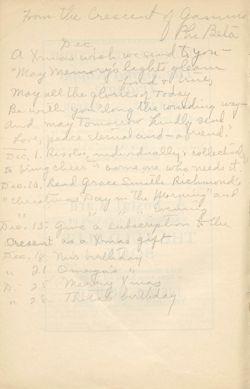 From the Crescent of Gamma
Phi Beta
Dec.
A Xmas wish we send to you—
May Memory's lights gleam
kind & true,
May all the glories of Today
Be with you along the winding way
and may Tomorrow kindly send
Love, peace eternal and a friend.
Dec. 1. Resolve, individually & collectively
to bring cheer to some one who needs it.
Dec. 10. Read Grace Smith Richmond's
"Christmas Day in the Morning" and
" " " " Evening
Dec. 15. Give a subscription to the
Crescent as a Xmas gift.
Dec. 18. Nu's birthday
" 21. Omega's "
D. 25. Merry Xmas
" 28. Theta's birthday